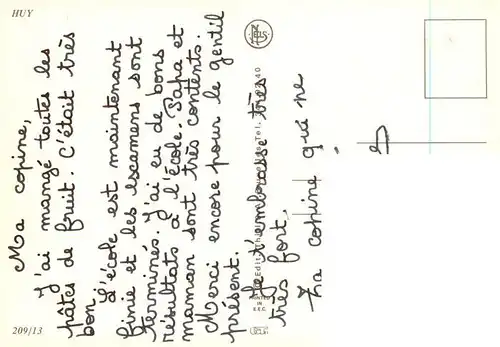 HUY
Ma copine,
J'ai mangé toutes les
pâtes de fruit. C'était très
bon.
L'école est maintenant
finie et les escamens sont
terminés. J'ai eu de bons
résultats à l'école. Papa et
maman sont très contents.
Merci encore pour le gentil
présent.
Je t'embrasse très
très fort.
Ta copine qui ne
PRINTED
IN
E.E.C.
209/13